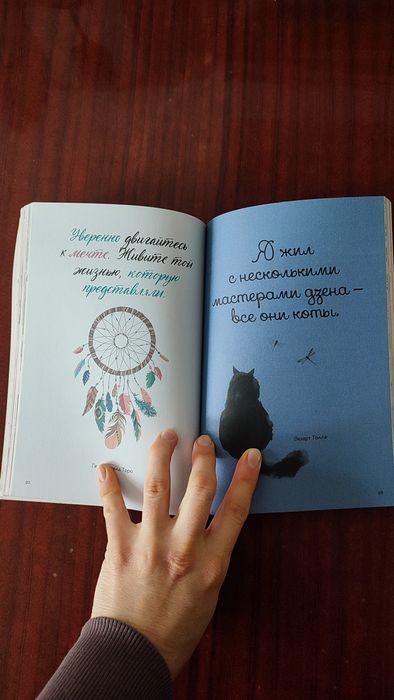 Уверенно двигайтесь
к мечте. Живите той
жизнью, которую
представляли.
Торо
Я жил
с несколькими
мастерами дзена –
все они коты.
Экхарт Толле